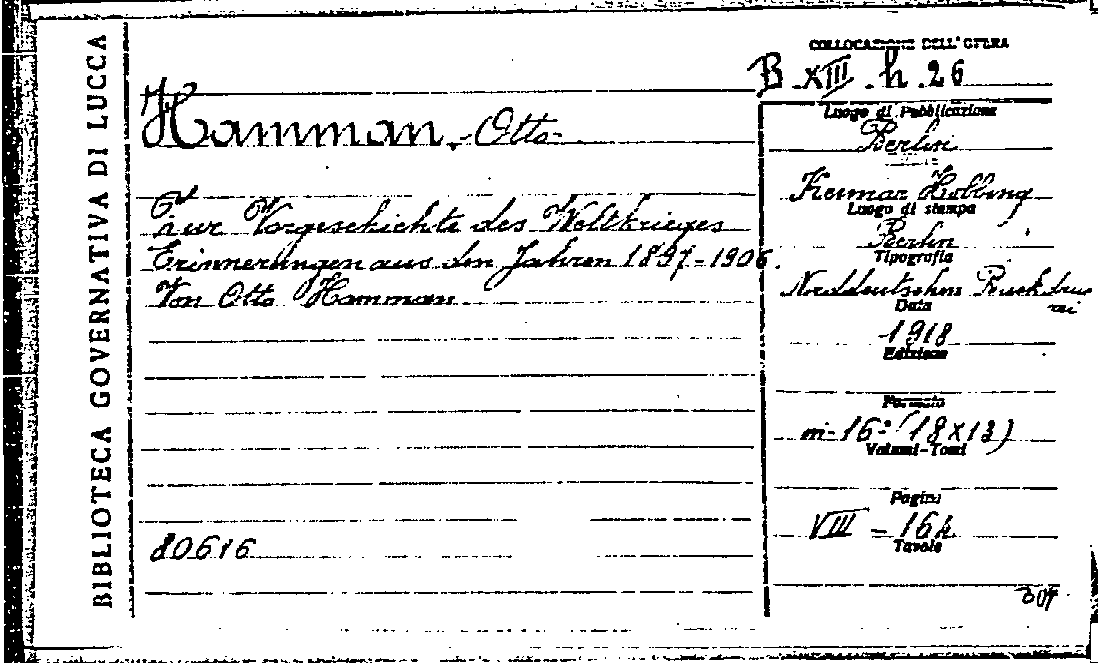 BIBLIOTECA GOVERNATIVA DI LUCCA
COLLOCAZIONE DELL'OPERA
B. XIII. h. 26
Hamman, Otto
Zur Vorgeschichte des Weltkrieges
Erinnerungen aus den Jahren 1897-1906.
Von Otto Hamman
80616
Luogo di Pubblicazione
Berlin
Hobbing
Luogo di stampa
Berlin
Tipografia
Norddeutschen Buchdruc
rei
Data
1918
Edizione
Formato
in-16º (18x13)
Volumi-Tomi
Pagine
VIII - 164
Tavole